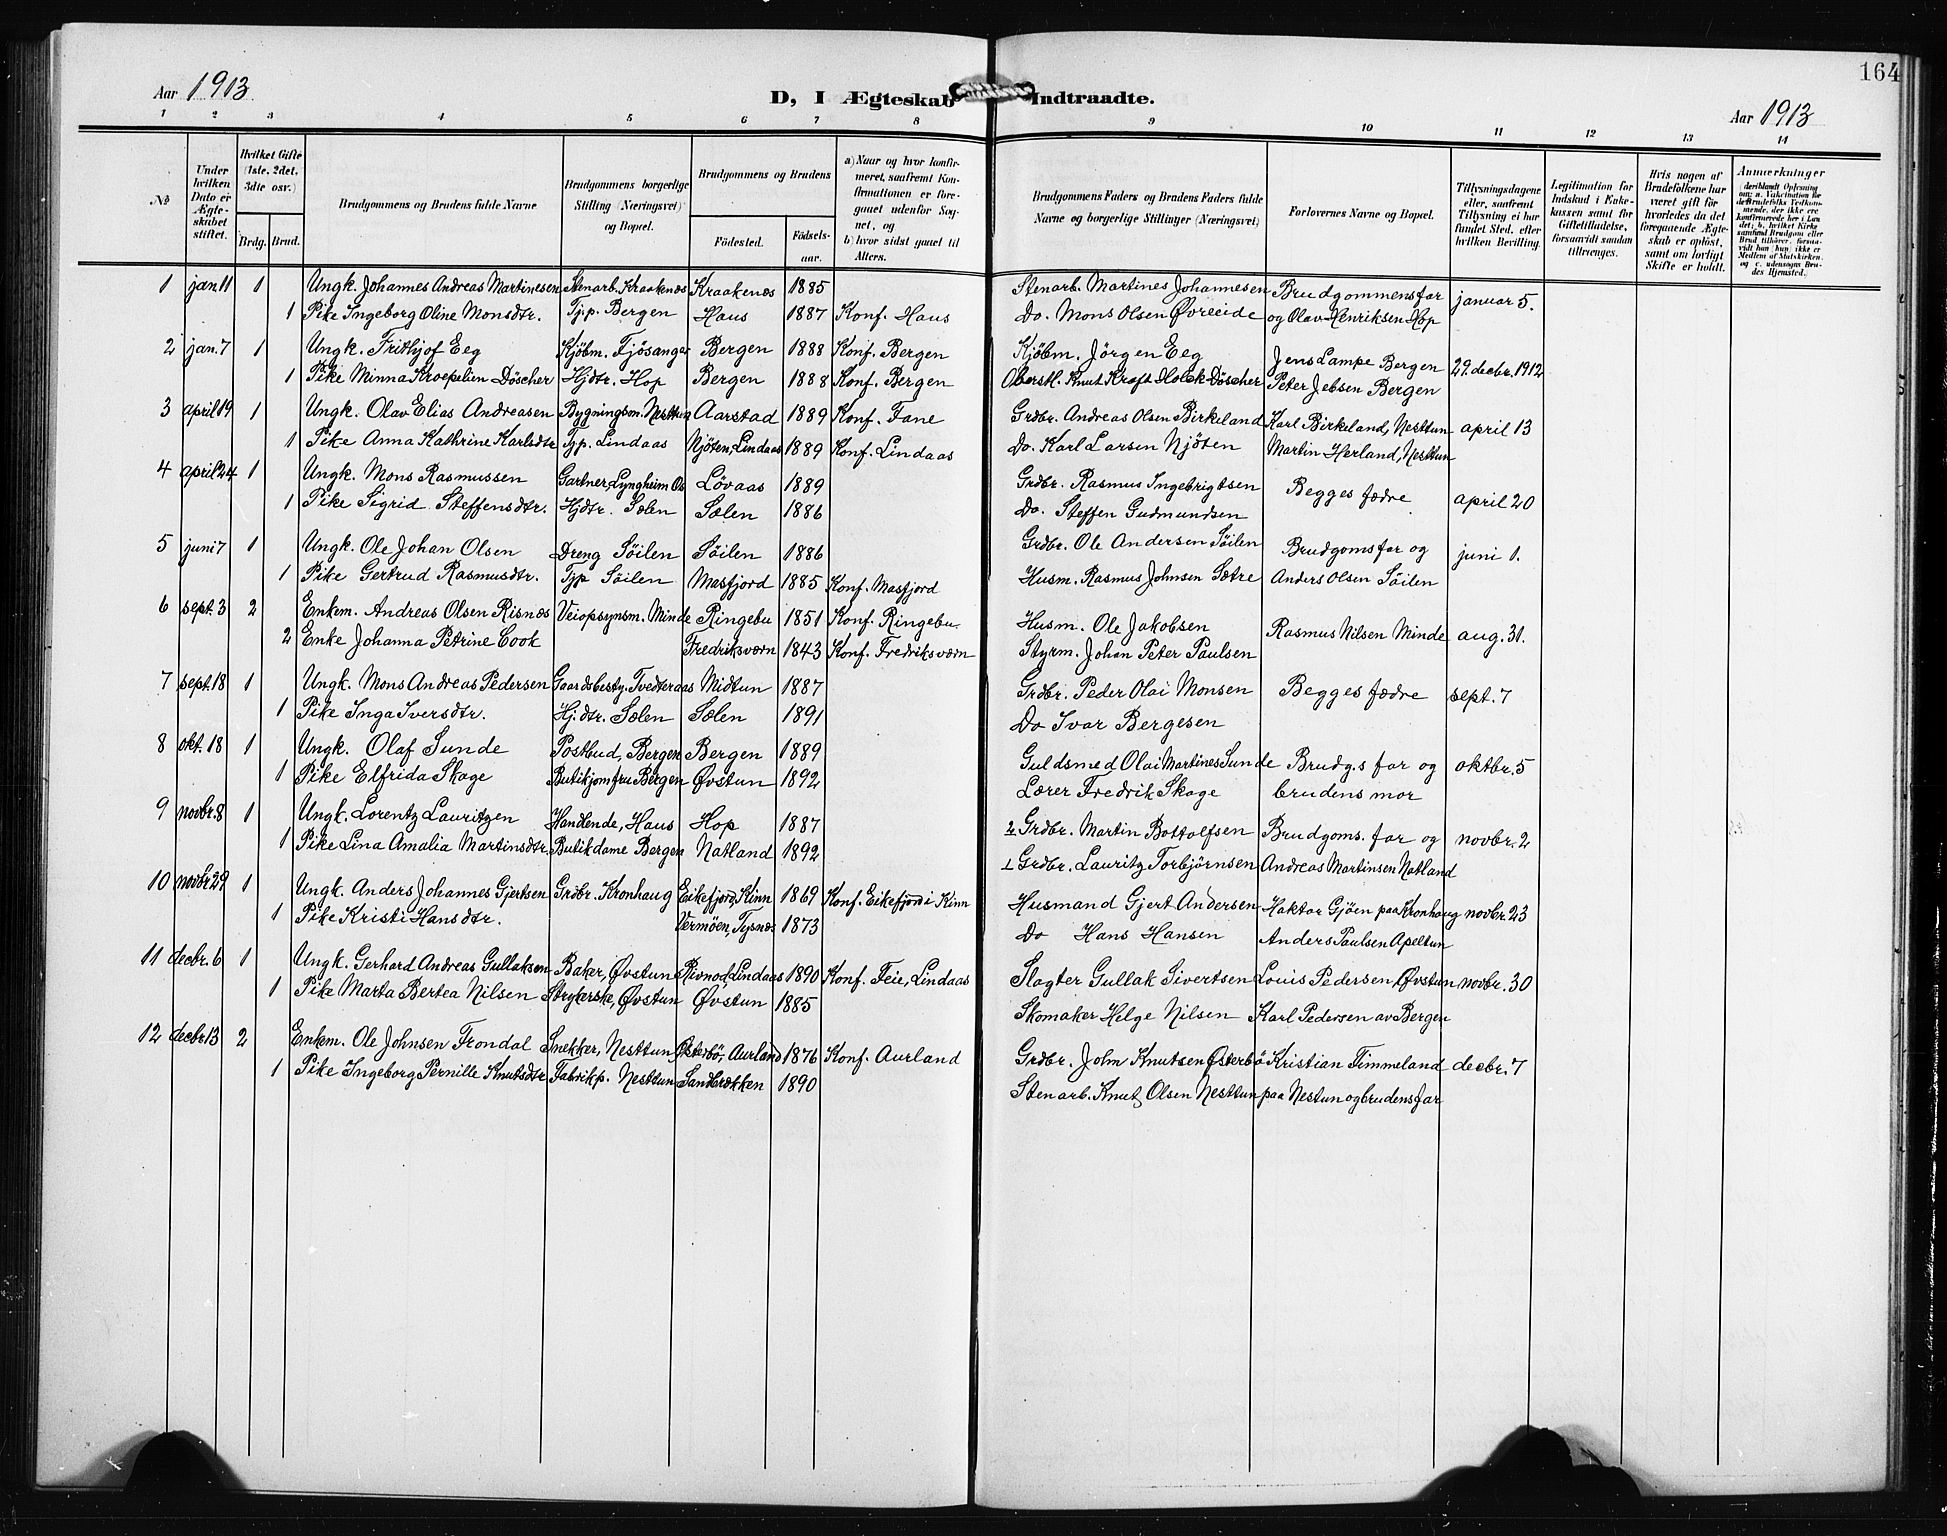 164
Aar 1913. D, I Ægteskab Indtraadte. Aar 1913
1 2 3 4 5 6 7 8 9 10 11 12 13 14
No
Under hvilken Dato er Ægteskabet stiftet.
Hvilket Gifte (1ste, 2det, 3die osr.)
Brdg. Brud.
Brudgommens og Brudens fulde Navne
Brudgommens borgerlige Stilling (Næringsvei) og Bopæl.
Brudgommens og Brudens
Fødested. Fødselsaar.
a) Naar og hvor konfirmeret, saafremt Konfirmationen er foregaaet udenfor Sognet, og
b) hvor sidst gaaet til Alters.
Brudgommens Faders og Brudens Faders fulde Navne og borgerlige Stillinger (Næringsvei)
Forlovernes Navne og Bopæl.
Tillysningsdagene eller, saafremt Tillysning ei har fundet Sted, efter hvilken Bevilling.
Legitimation for Indskud i Enkekassen samt for Giftetilladelse, forsaavidt saadan tiltrænges.
Hvis nogen af Brudefolkene har været gift før hvorledes da det foregaaende Ægteskab er opløst, samt om lovligt Skifte er holdt.
Anmærkninger
1 jan. 11 1 Ungk. Johannes Andreas Martinesen Stenarb. Kraakenes Kraakenes 1885 Stenarb. Martines Johannesen Brudgommens far januar 5.
1 Pike Ingeborg Oline Monsdtr. Tj.p. Bergen Haus 1887 Konf. Haus Do. Mons Olsen Øvreeide og Olav Henriksen Hop
2 jan. 7 1 Ungk. Frithjof Eeg Kjøbm. Fjøsanger Bergen 1888 Konf. Bergen Kjøbm. Jörgen Eeg Jens Lampe Bergen 29. decbr. 1912
1 Pike Minna Kroepelien Döscher Hjdtr. Hop Bergen 1888 Konf. Bergen Oberstl. Knut Kraft Holck Döscher Peter Jebsen Bergen
3 april 19 1 Ungk. Olav Elias Andreasen Bygningsm. Nesttun Aarstad 1889 Konf. Fane Grdbr. Andreas Olsen Birkeland Karl Birkeland, Nesttun april 13
1 Pike Anna Kathrine Karlsdtr Tjp. Lindaas Njöten, Lindaas 1889 Konf. Lindaas Do. Karl Larsen Njöten Martin Herland, Nesttun
4 april 24 1 Ungk. Mons Rasmussen Gartner, Lyngheim Os Lövaas 1889 Grdbr. Rasmus Ingebrigtsen Begges fædre april 20
1 Pike Sigrid Steffensdtr. Hjdtr. Sælen Sælen 1886 Do. Steffen Gudmundsen
5 juni 7 1 Ungk. Ole Johan Olsen Dreng Söilen Söilen 1886 Grdbr. Ole Andersen Söilen Brudgoms far og juni 1.
1 Pike Gertrud Rasmusdtr. Tjp Söilen Masfjord 1885 Konf. Masfjord Husm. Rasmus Johnsen Sætre Anders Olsen Söilen
6 sept. 3 2 Enkem. Andreas Olsen Risnæs Veiopsynsm. Minde Ringebu 1851 Konf. Ringebu. Husm. Ole Jakobsen Rasmus Nilsen Minde aug. 31.
2 Enke Johanna Petrine Cook Fredriksværn 1843 Konf. Fredriksværn Styrm. Johan Peter Paulsen
7 sept. 18 1 Ungk. Mons Andreas Pedersen Gaardsbesty. Tvedteraas Midtun 1887 Grdbr. Peder Olai Monsen Begges fædre sept. 7
1 Pike Inga Iversdtr. Hj.dtr. Sælen Sælen 1891 Do Ivar Bergesen
8 okt. 18 1 Ungk. Olaf Sunde Postbud, Bergen Bergen 1889 Guldsmed Olai Martines Sunde Brudg.s far og oktbr. 5
1 Pike Elfrida Skage Butikjomfru Bergen Øvstun 1892 Lærer Fredrik Skage brudens mor
9 novbr. 8 1 Ungk. Lorentz Lauritzen Handlende, Haus Hop 1887 2 Grdbr. Martin Bottolfsen Brudgoms. far og novbr. 2
1 Pike Lina Amalia Martinsdtr. Butikdame Bergen Natland 1892 1 Grdbr. Lauritz Torbjörnsen Andreas Martinsen Natland
10 novbr 29 1 Ungk. Anders Johannes Gjertsen Grdbr. Kronhaug Eikefjord, Kinn 1869 Konf. Eikefjord i Kinn Husmand Gjert Andersen Haktor Gjöen paa Kronhaug novbr. 23
1 Pike Kristi Hansdtr. Vermöen, Tysnes 1873 Do Hans Hansen Anders Paulsen Apeltun
11 decbr. 6 1 Ungk. Gerhard Andreas Gullaksen Baker, Øvstun Rivnod, Lindaas 1890 Konf. Feie, Lindaas Slagter Gullak Sivertsen Louis Pedersen Øvstun novbr. 30
1 Pike Marta Bertea Nilsen Strykerske, Øvstun Øvstun 1885 Skomaker Helge Nilsen Karl Pedersen av Bergen
12 decbr 13 2 Enkem. Ole Johnsen Frondal Snekker, Nesttun Østerbö, Aurland 1876 Konf. Aurland Grdbr. John Knutsen Østerbö Kristian Timmeland decbr. 7
1 Pike Ingeborg Pernille Knutsdtr Fabrikp. Nesttun Sandbrækken 1890 Stenarb. Knut Olsen Nesttun paa Nestun og brudens far